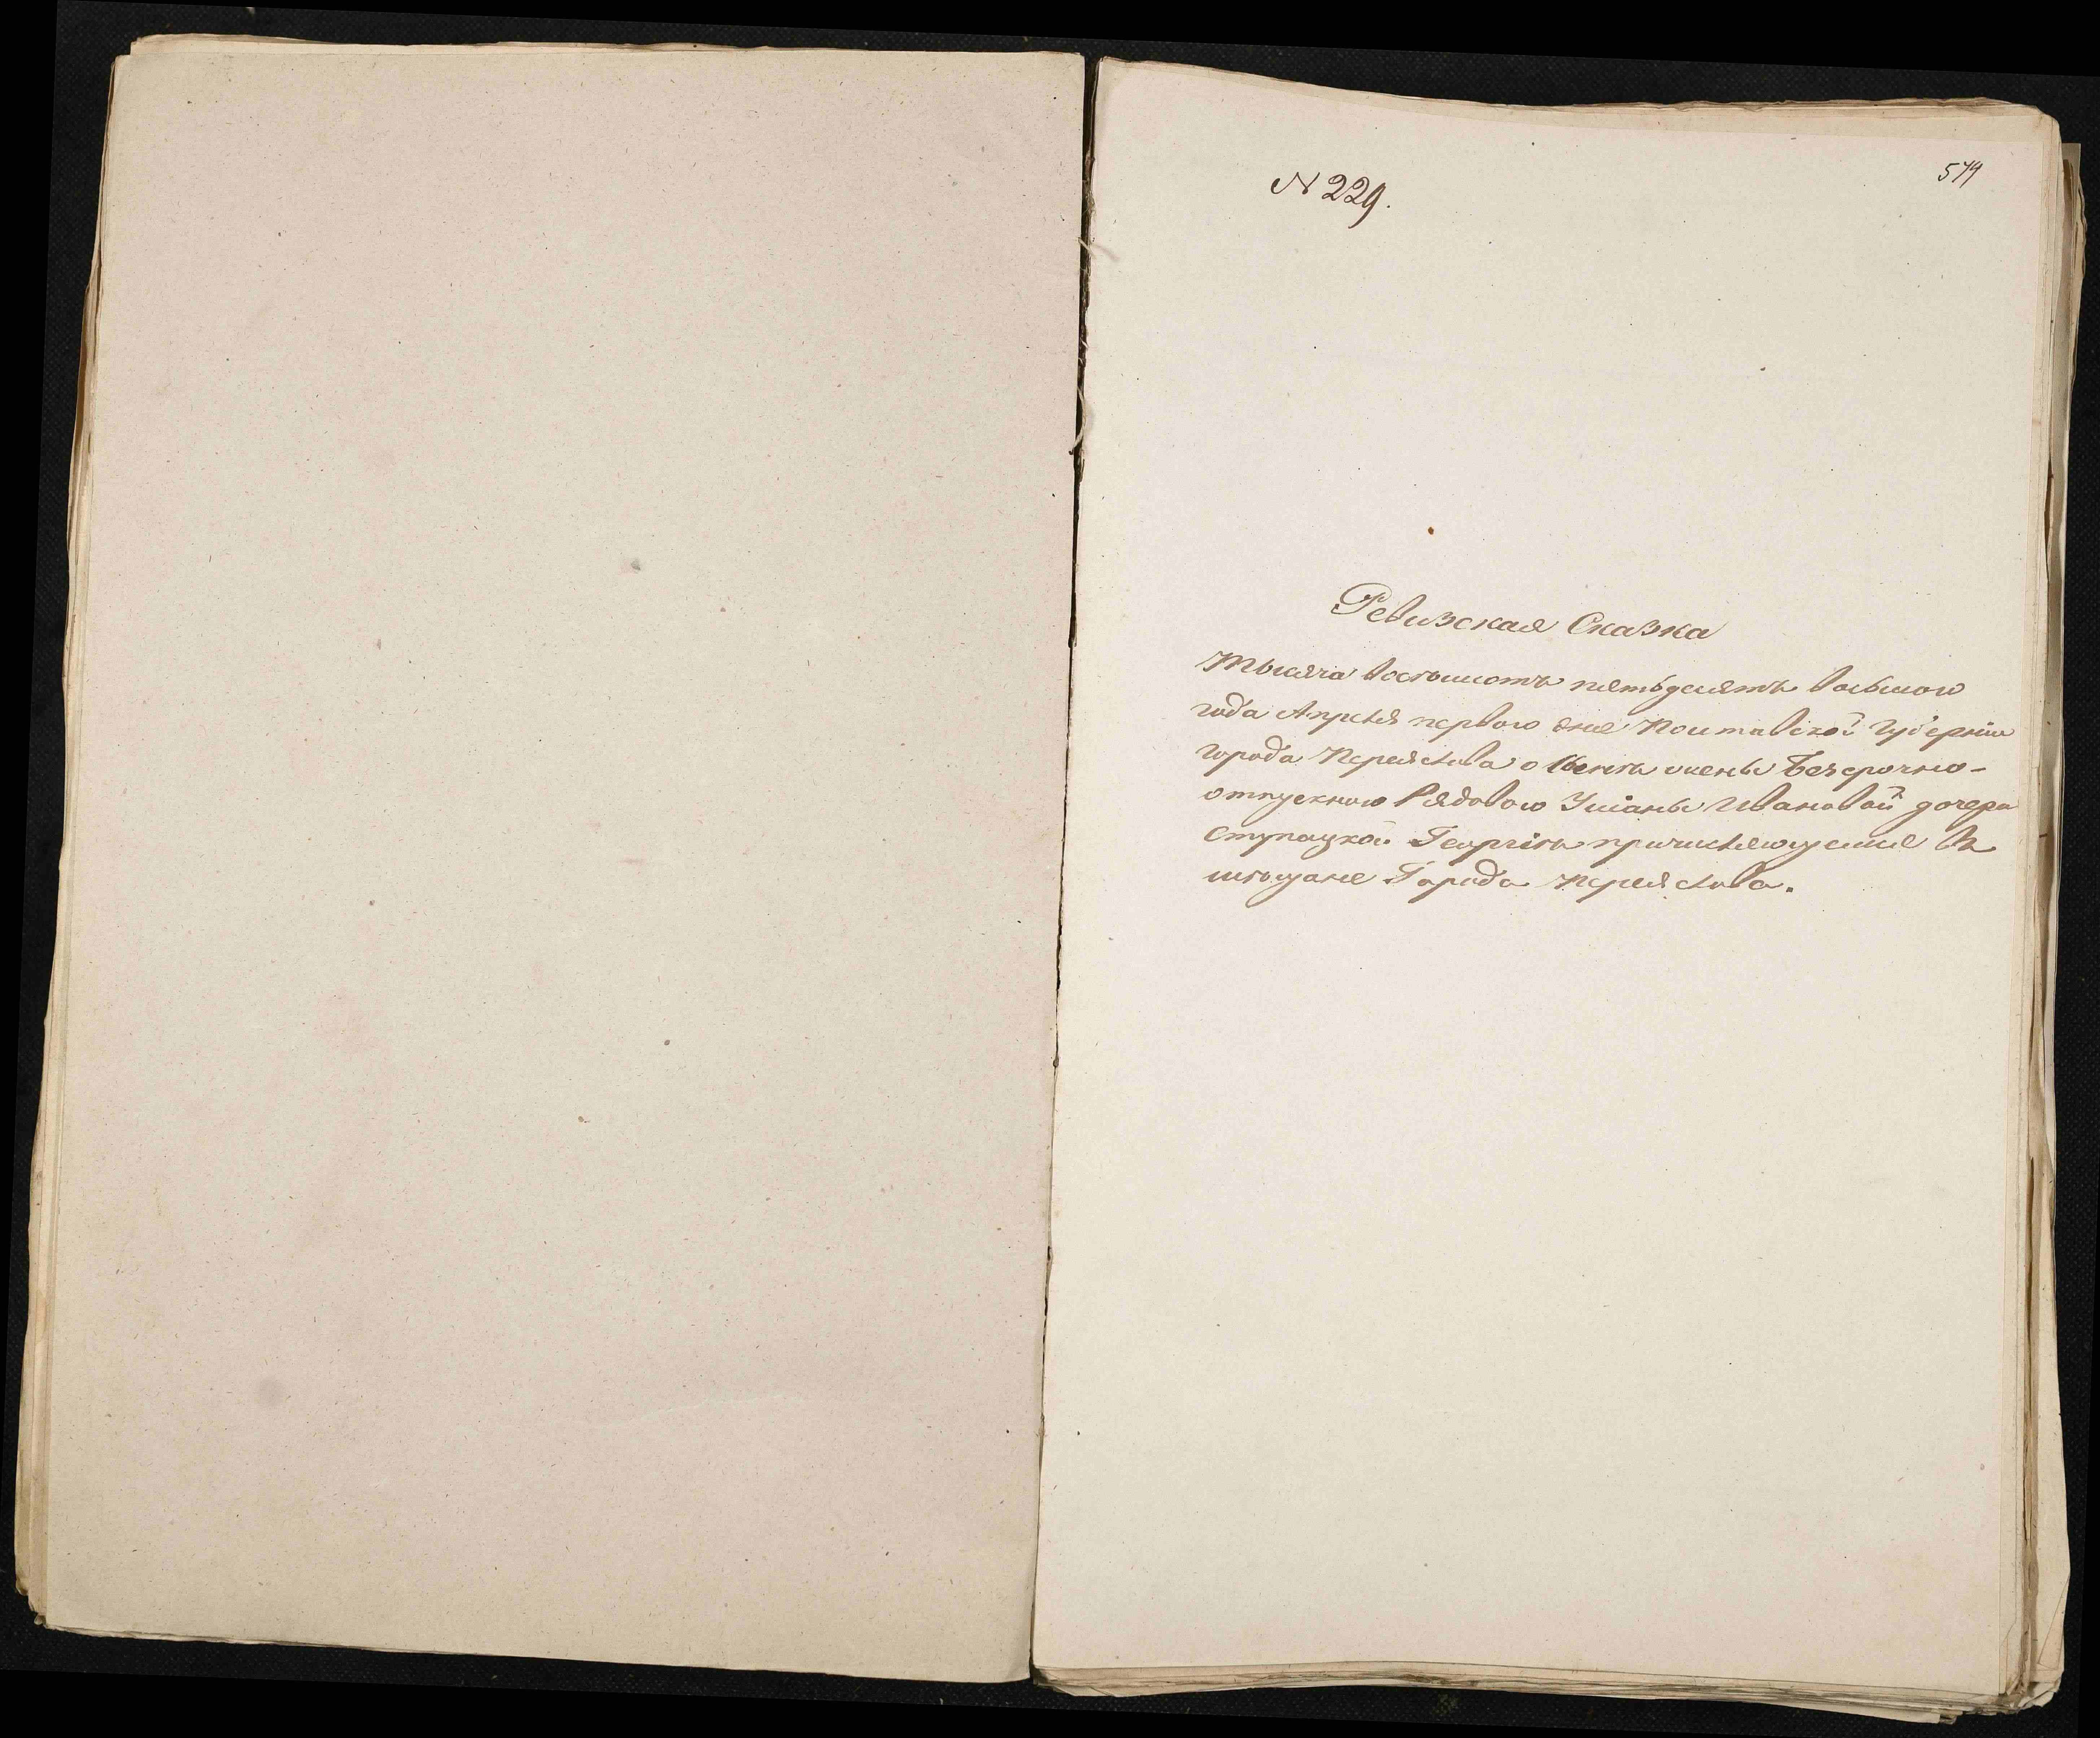 N 229.
579
Ревизская Сказка
Тысяча восемьсотъ пятьдесятъ восьмого
года Апреля первого дня Полтавской Губерніи
города Переяслова о сынѣ жены Безсрочно-
отпускного Рядового Уліаны Ивановой дочери
Ступацкой Георгіѣ причисляющемся въ
мѣщане Города Переяслова.